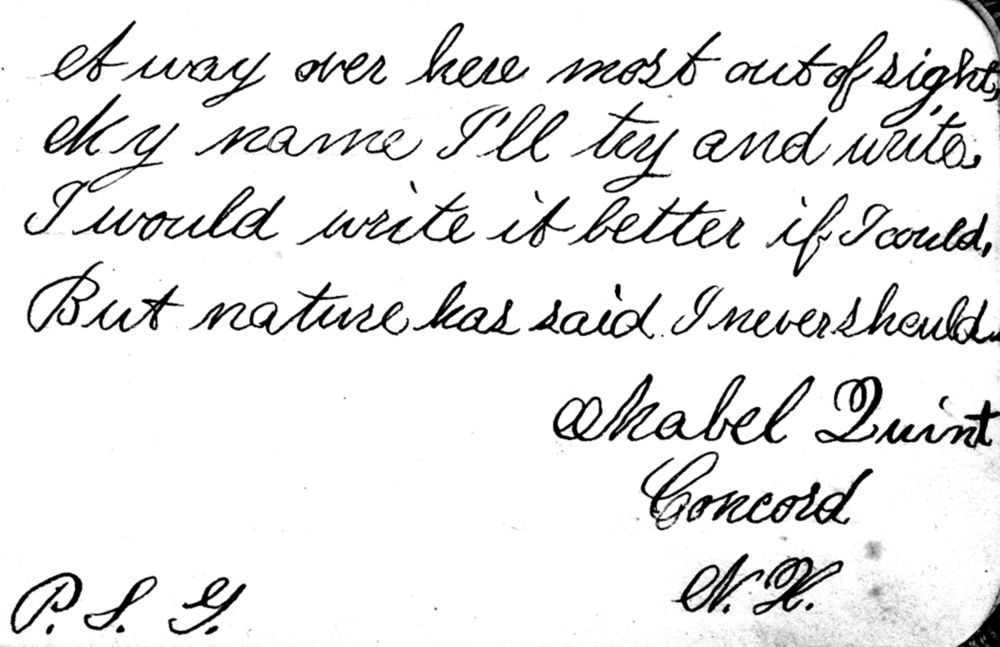 A way over here most out of sight,
My name I'll try and write.
I would write it better if I could,
But nature has said I never should.
Mabel Quint
Concord
N. H.
P. S. G.